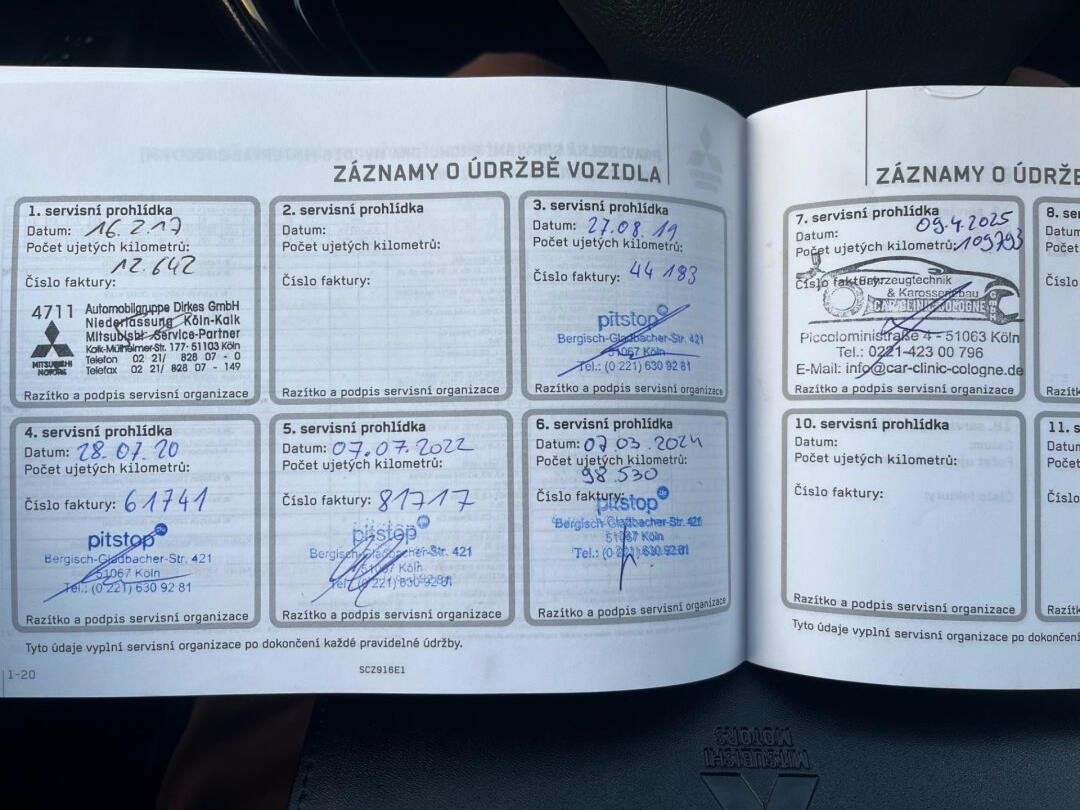 ZÁZNAMY O ÚDRŽBĚ VOZIDLA
1. servisní prohlídka
Datum: 16.2.17
Počet ujetých kilometrů:
12.642
Číslo faktury:
4711
MITSUBISHI
MOTORS
Automobilgruppe Dirkes GmbH
Niederlassung Köln-Kalk
Mitsubishi Service-Partner
Kalk-Mülheimer-Str. 177 · 51103 Köln
Telefon 02 21/ 828 07 - 0
Telefax 02 21/ 828 07 - 149
Razítko a podpis servisní organizace
2. servisní prohlídka
Datum:
Počet ujetých kilometrů:
Číslo faktury:
Razítko a podpis servisní organizace
3. servisní prohlídka
Datum: 27.08.19
Počet ujetých kilometrů:
Číslo faktury: 44 183
pitstop
Bergisch-Gladbacher-Str. 421
51067 Köln
Tel.: (0 221) 630 92 81
Razítko a podpis servisní organizace
4. servisní prohlídka
Datum: 28.07.20
Počet ujetých kilometrů:
Číslo faktury: 61741
pitstop
Bergisch-Gladbacher-Str. 421
51067 Köln
Tel.: (0 221) 630 92 81
Razítko a podpis servisní organizace
5. servisní prohlídka
Datum: 07.07.2022
Počet ujetých kilometrů:
Číslo faktury: 81717
pitstop
Bergisch-Gladbacher-Str. 421
51067 Köln
Tel.: (0 221) 630 92 81
Razítko a podpis servisní organizace
6. servisní prohlídka
Datum: 07.03.2024
Počet ujetých kilometrů:
98.530
Číslo faktury:
pitstop
Bergisch-Gladbacher-Str. 421
51067 Köln
Tel.: (0 221) 630 92 81
Razítko a podpis servisní organizace
Tyto údaje vyplní servisní organizace po dokončení každé pravidelné údržby.
1-20
SCZ916E1
ZÁZNAMY O ÚDRŽBĚ
7. servisní prohlídka
Datum: 09.4.2025
Počet ujetých kilometrů: 109793
Číslo faktury:
Fahrzeugtechnik
& Karosseriebau
CAR CLINIC COLOGNE
Piccoloministraße 4 - 51063 Köln
Tel.: 0221-423 00 796
E-Mail: info@car-clinic-cologne.de
Razítko a podpis servisní organizace
8. se
Datum
Počet
Číslo
Razít
10. servisní prohlídka
Datum:
Počet ujetých kilometrů:
Číslo faktury:
Razítko a podpis servisní organizace
11. s
Datum
Počet
Číslo
Razít
Tyto údaje vyplní servisní organizace po dokončení
MITSUBISHI
MOTORS